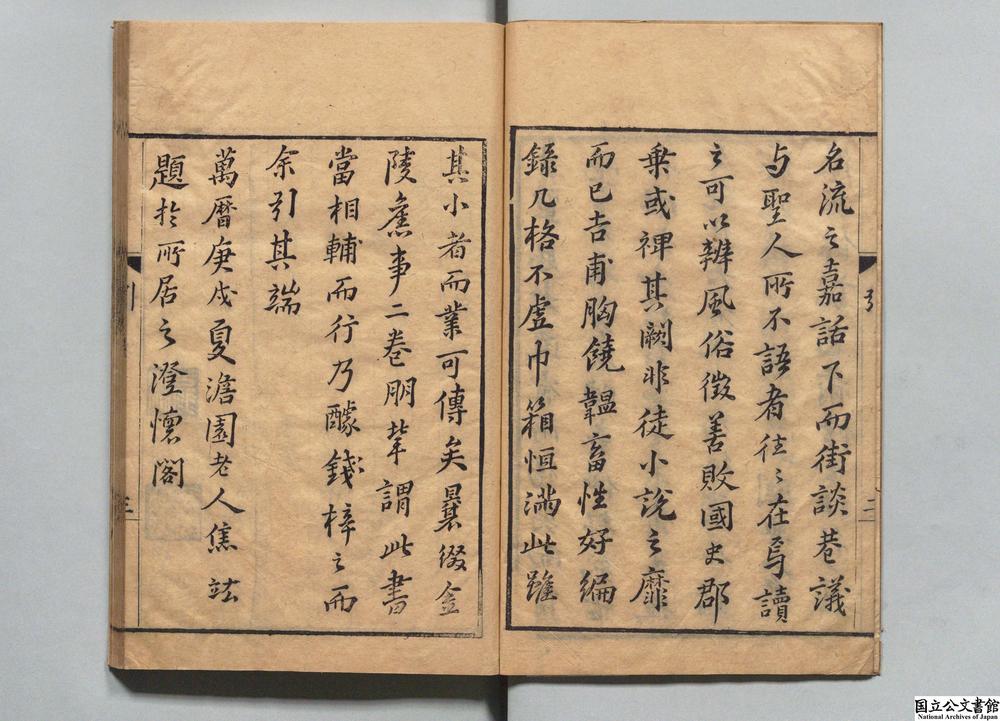 名流之嘉話下而街談巷議
与聖人所不語者往〻在焉讀
之可以辨風俗徴善敗國史郡
乗或裨其闕非徒小說之靡
而已吉甫胸饒韞畜性好編
錄几格不虚巾箱恒滿此雖
引
二
其小者而業可傳矣曩綴金
陵舊事二卷朋輩謂此書
當相輔而行乃醵錢梓之而
余引其端
萬曆庚戌夏澹園老人焦竑
題於所居之澄懷閣
引
三
国立公文書館
National Archives of Japan